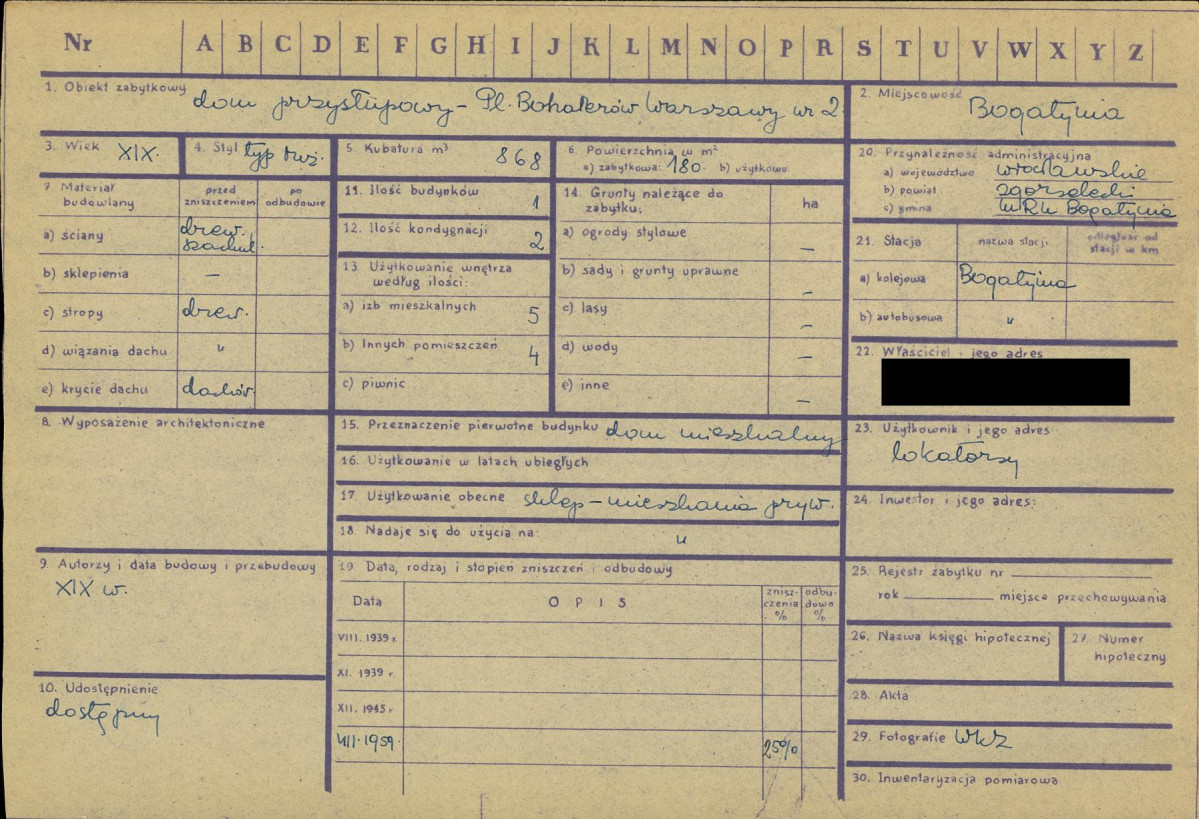 Nr A B C D E F G H I J K L M N O P R S T U V W X Y Z
1. Obiekt zabytkowy dom przysłupowy - Pl. Bohaterów Warszawy nr 2
2. Miejscowość Bogatynia
3. Wiek XIX.
4. Styl typ łuż.
5. Kubatura m³ 868
6. Powierzchnia w m²
a) zabytkowa: 180. b) użytkowa
7. Materiał budowlany
przed zniszczeniem
po odbudowie
a) ściany drew. szachul.
b) sklepienia —
c) stropy drew.
d) wiązania dachu "
e) krycie dachu dachów.
8. Wyposażenie architektoniczne
9. Autorzy i data budowy i przebudowy
XIX w.
10. Udostępnienie
dostępny
11. Ilość budynków 1
12. Ilość kondygnacji 2
13. Użytkowanie wnętrza
według ilości:
a) izb mieszkalnych 5
b) Innych pomieszczeń 4
c) piwnic
14. Grunty należące do
zabytku:
ha
a) ogrody stylowe —
b) sady i grunty uprawne —
c) lasy —
d) wody —
e) inne —
15. Przeznaczenie pierwotne budynku dom mieszkalny
16. Użytkowanie w latach ubiegłych
17. Użytkowanie obecne sklep - mieszkania pryw.
18. Nadaje się do użycia na: "
19 Data, rodzaj i stopień zniszczeń i odbudowy
Data
O P I S
znisz-
czenia
%
odbu-
dowa
%
VIII. 1939 r.
XI. 1939 r.
XII. 1945 r
VIII. 1959. 25%
20. Przynależność administracyjna
a) województwo wrocławskie
b) powiat zgorzelecki
c) gmina M.R.N. Bogatynia
21. Stacja
nazwa stacji
odległość od
stacji w km
a) kolejowa Bogatynia
b) autobusowa "
22. Właściciel i jego adres
23. Użytkownik i jego adres
lokatorzy
24. Inwestor i jego adres:
25. Rejestr zabytku nr
rok miejsce przechowywania
26. Nazwa księgi hipotecznej
27. Numer
hipoteczny
28. Akta
29. Fotografie WKZ
30. Inwentaryzacja pomiarowa